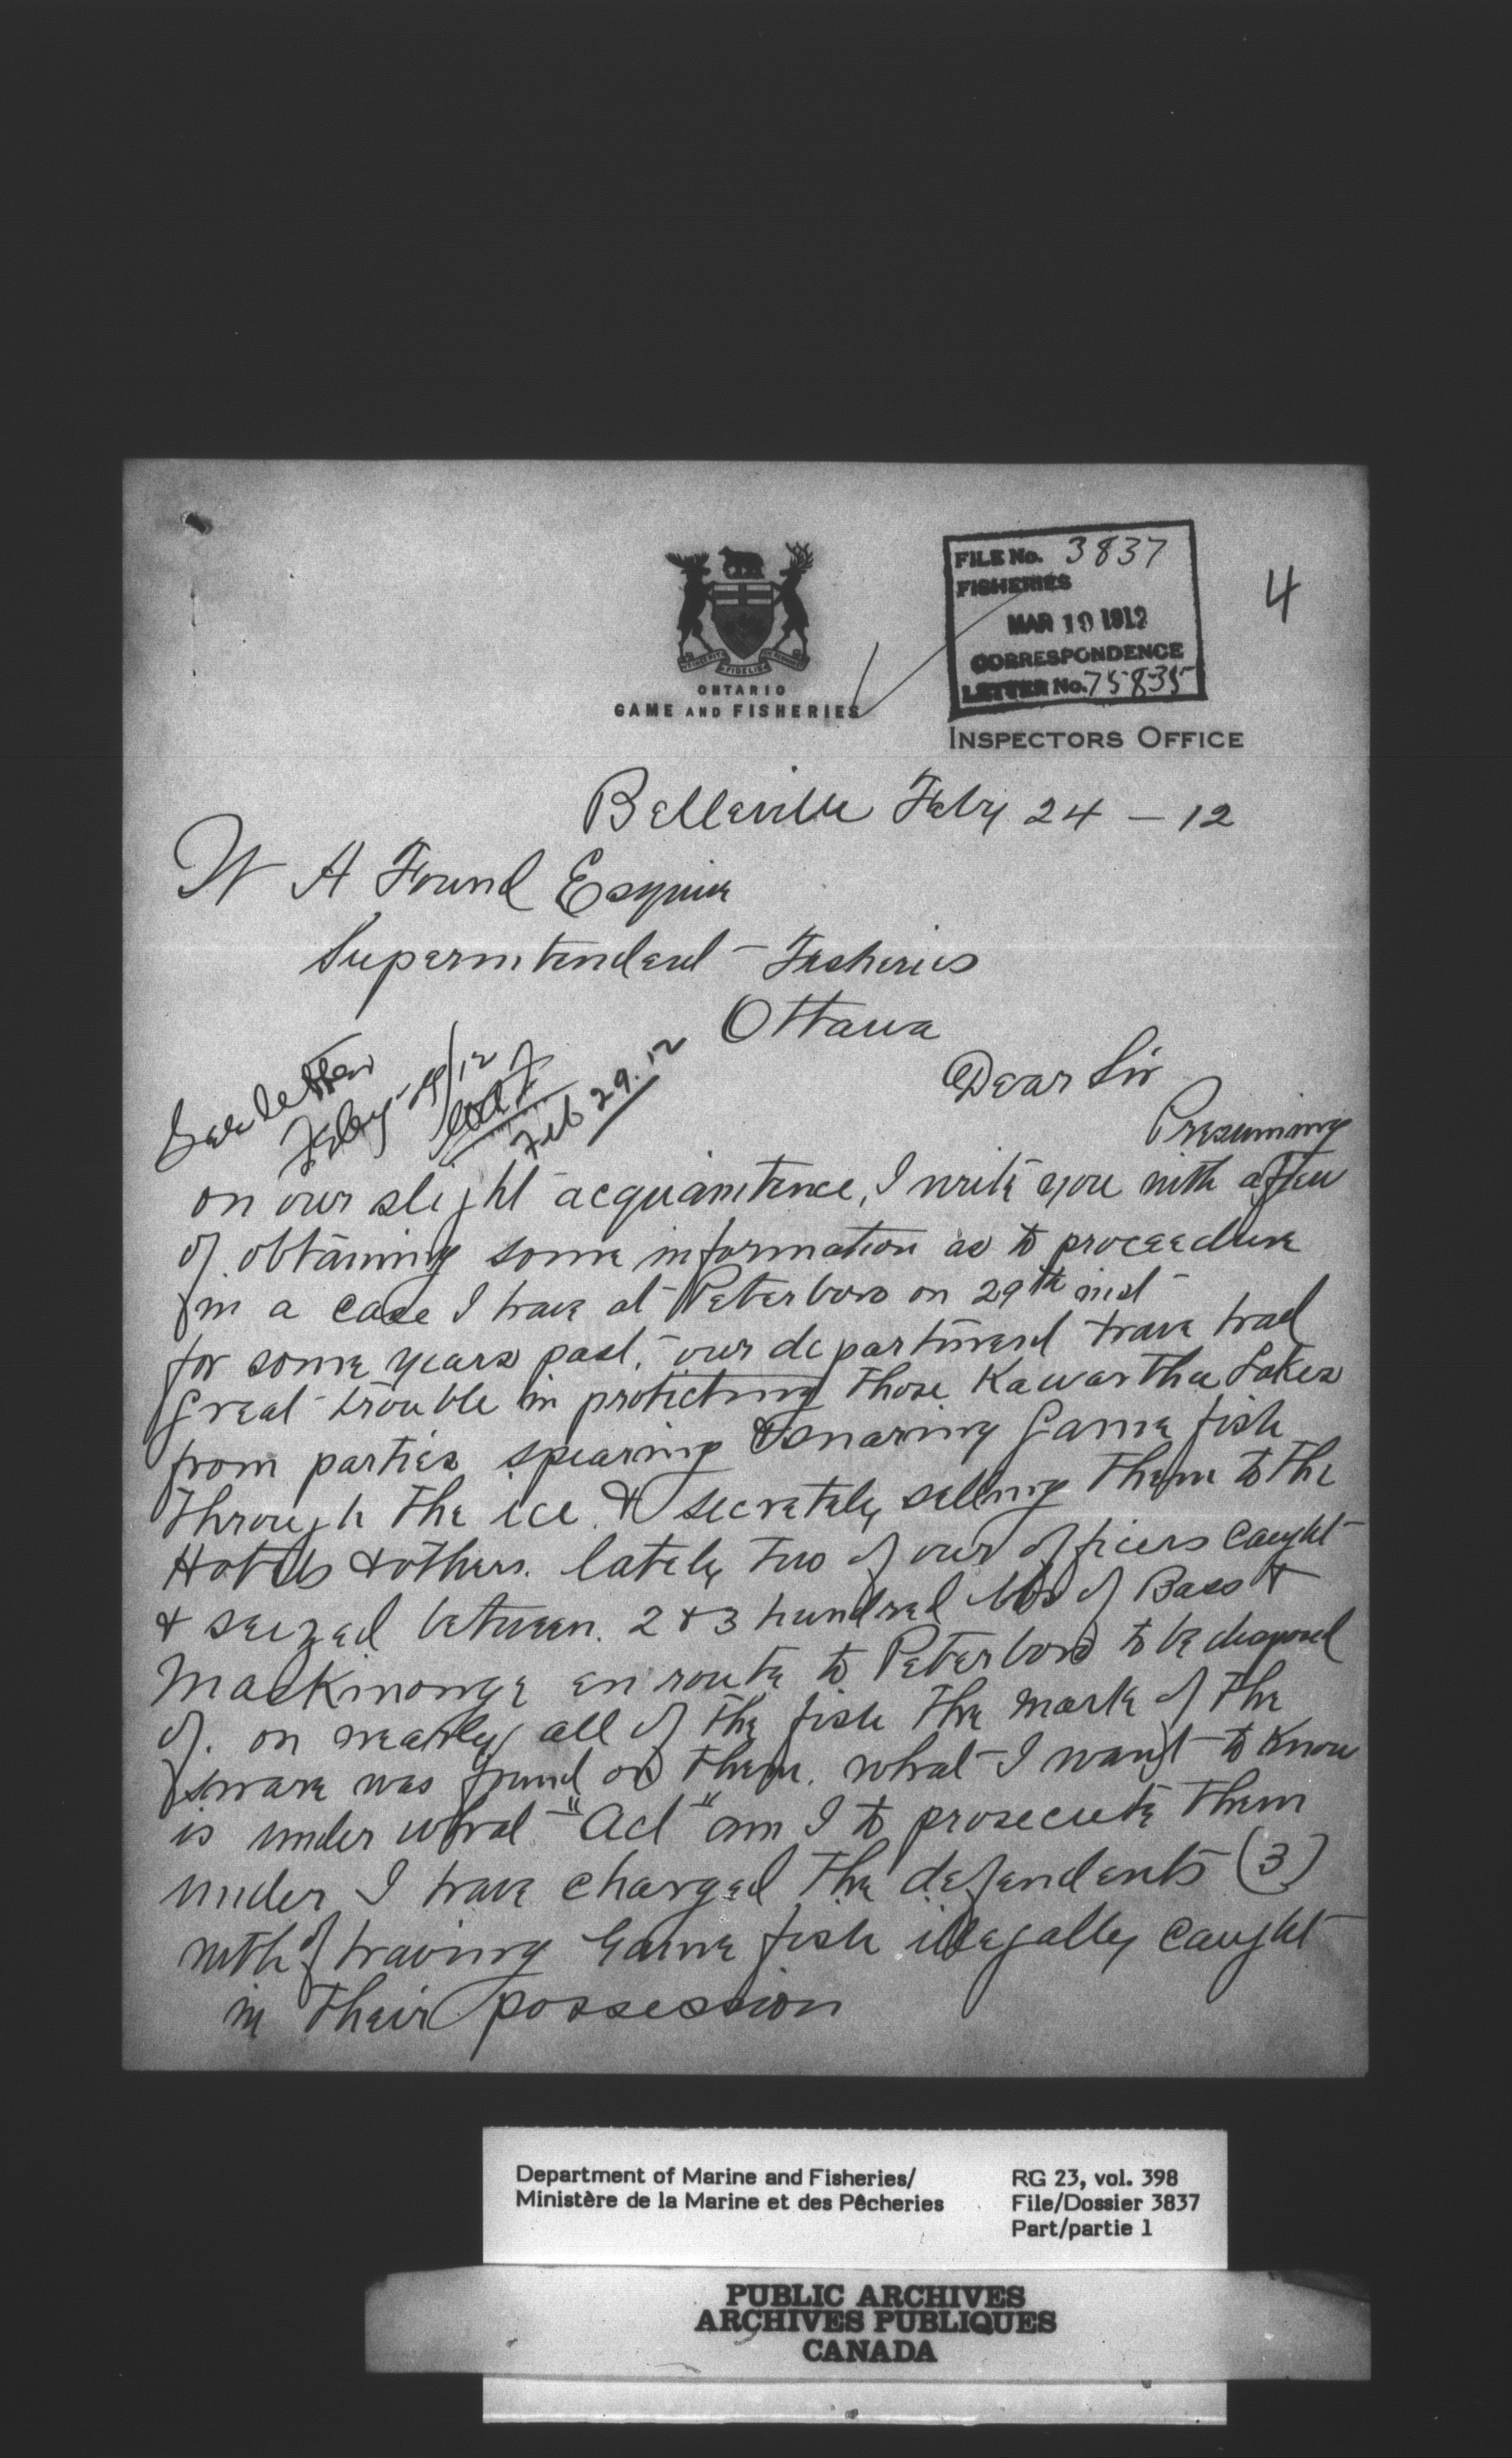 FILE No. 3837
FISHERIES
MAR 19 1912
CORRESPONDENCE
LETTER No. 75835
4
FIDELIS
ONTARIO
GAME AND FISHERIES
INSPECTORS OFFICE
Belleville Feby 24 - 12
W A Found Esquire
Superintendent - Fisheries
Ottawa
See letter
Feby 29/12
Feb 29.12
Dear Sir
Presuming
on our slight acquaintence, I write you with a view
of obtaining some information as to proceedure
in a case I have at Peterboro on 29th inst
for some years past, our department have had
great trouble in protecting those Kawartha Lakes
from parties spearing & snaring Game fish
through the ice & secretely selling them to the
Hotels & others. lately two of our officers caught
& seized between 2 & 3 hundred lbs of Bass &
Maskinonge en route to Peterboro to be disposed
of. on nearly all of the fish the mark of the
snare was found on them. what I want to know
is under what "Act" am I to prosecute them
under I have charged the defendents (3)
with of having Game fish illegally caught
in their possession
Department of Marine and Fisheries/
Ministère de la Marine et des Pêcheries
RG 23, vol. 398
File/Dossier 3837
Part/partie 1
PUBLIC ARCHIVES
ARCHIVES PUBLIQUES
CANADA